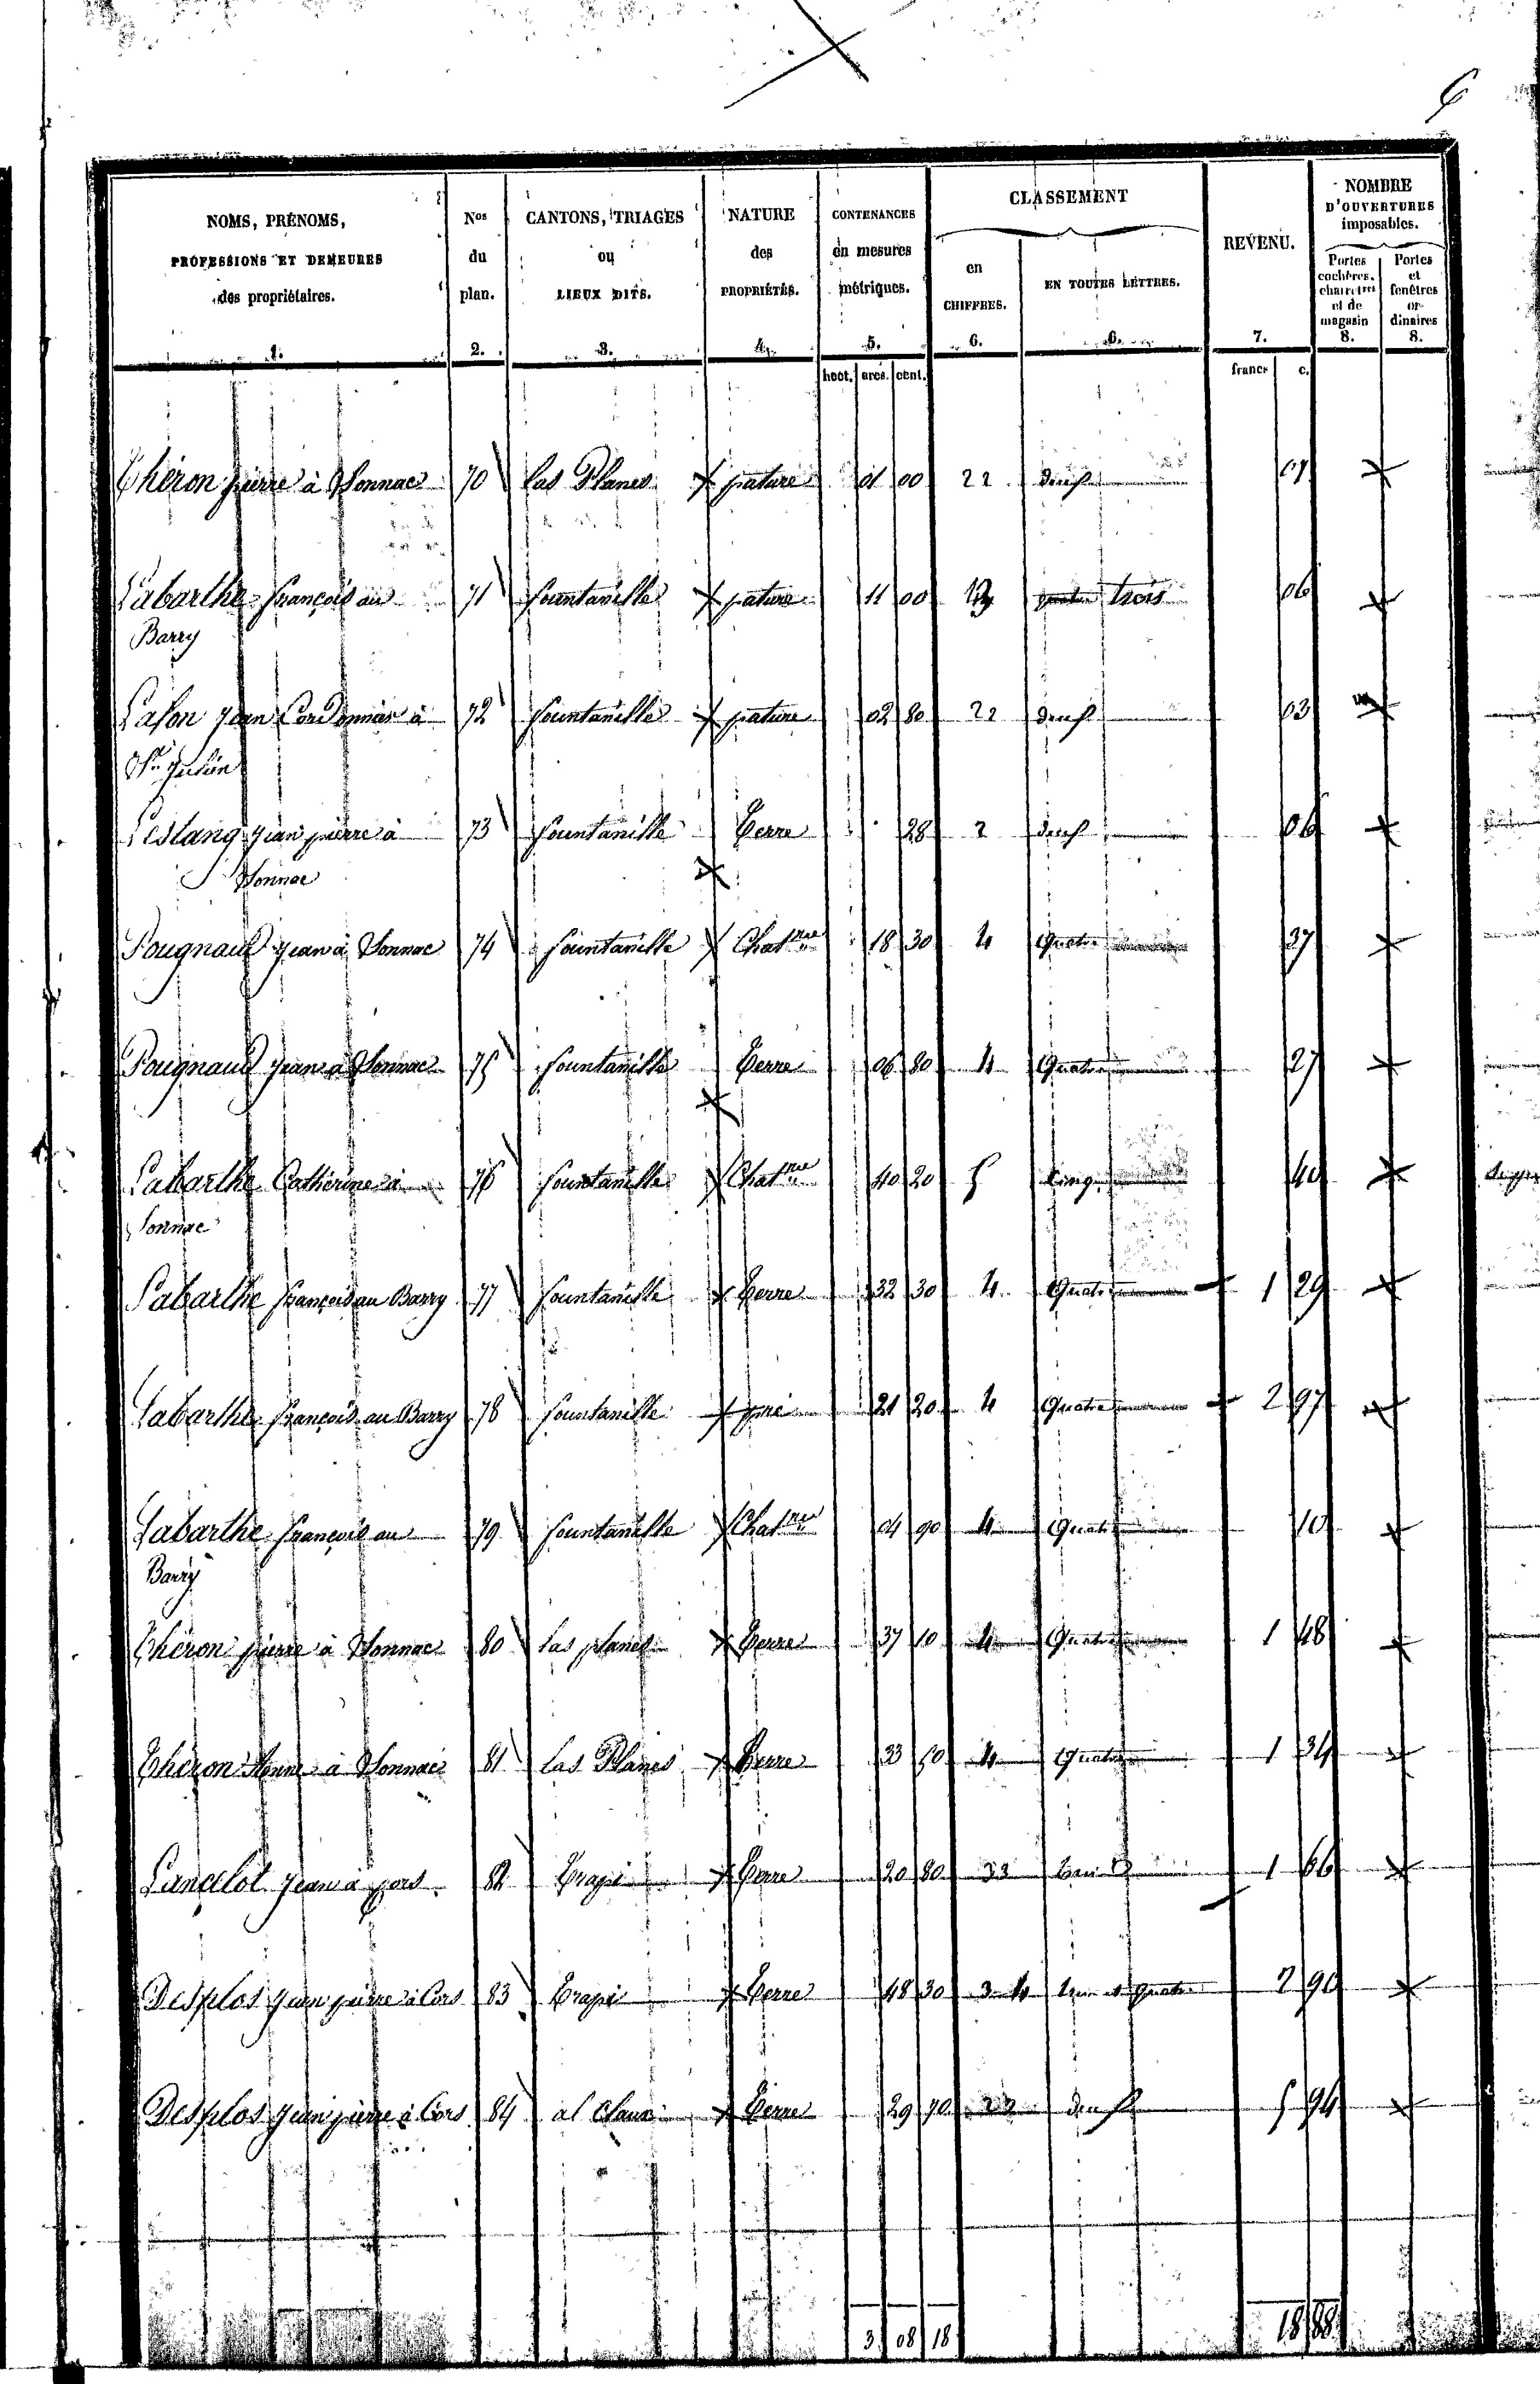 6
NOMS, PRÉNOMS, PROFESSIONS ET DEMEURES des propriétaires. 1. | Nos du plan. 2. | CANTONS, TRIAGES ou LIEUX DITS. 3. | NATURE des PROPRIÉTÉS. 4. | CONTENANCES en mesures métriques. 5. | CLASSEMENT en CHIFFRES. 6. | EN TOUTES LETTRES. 6. | REVENU. 7. | NOMBRE D'OUVERTURES imposables. Portes cochères, charretres et de magasin 8. | Portes et fenêtres ordinaires 8.
hect. | ares. | cent. | francs | c.
Théron pierre à Sonnac | 70 | Las Planes | pature | 01 | 00 | 22 | deux | 01
Labarthe françois au | 71 | fountanille | pature | 11 | 00 | trois | 06
Barry
Lafon Jean Cordonnier à | 72 | fountanille | pature | 02 | 80 | 22 | deux | 03
St. Julien
Lestang jean pierre à | 73 | fountanille | Terre | 28 | 2 | deux | 06
Sonnac
Pougnaud Jean à Sonnac | 74 | fountanille | Chatnie | 18 | 30 | 4 | Quatre | 37
Pougnaud Jean à Sonnac | 75 | fountanille | Terre | 06 | 80 | 4 | Quatre | 27
Labarthe Catherine à | 76 | fountanille | Chatnie | 40 | 20 | 5 | Cinq | 40
Sonnac
Labarthe françois au Barry | 77 | fountanille | Terre | 32 | 30 | 4 | Quatre | 1 | 29
Labarthe françois au Barry | 78 | fountanille | pré | 21 | 20 | 4 | Quatre | 2 | 97
Labarthe françois au | 79 | fountanille | Chatnie | 04 | 90 | 4 | Quatre | 10
Barry
Théron pierre à Sonnac | 80 | las planes | Terre | 37 | 10 | 4 | Quatre | 1 | 48
Théron à Sonnac | 81 | Las Planes | Terre | 33 | 50 | 4 | Quatre | 1 | 34
Lancelot Jean à | 82 | Trapé | Terre | 20 | 80 | 33 | trois | 1 | 66
Desplos Jean pierre à Cors | 83 | Trapé | Terre | 48 | 30 | 3 4 | trois et quatre | 2 | 90
Desplos Jean pierre à Cors | 84 | al Claux | Terre | 29 | 70 | 22 | deux | 5 | 94
3 | 08 | 18 | 18 | 88